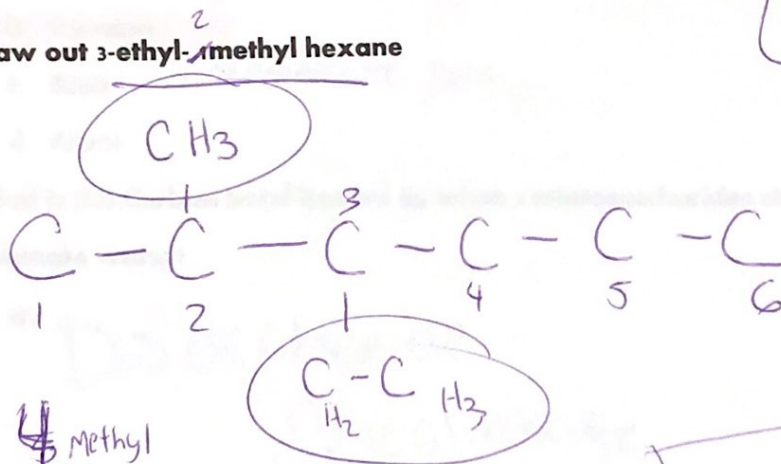 2
aw out 3-ethyl- methyl hexane
CH3
3
C — C — C — C — C — C
1 2 4 5 6
C - C H3
H2
Methyl